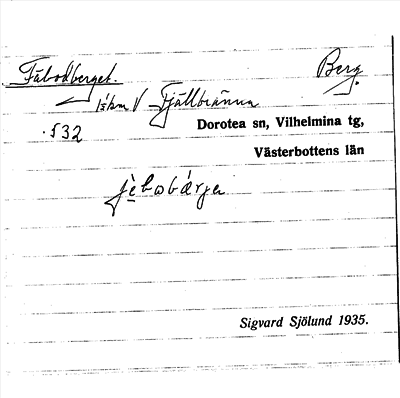 Fäbodberget. Berg.
1½ km V Fjällbränna
532 Dorotea sn, Vilhelmina tg,
Västerbottens län
Sigvard Sjölund 1935.